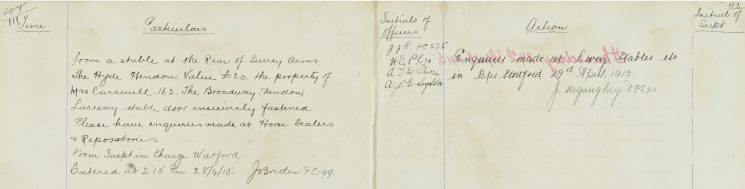 Time
Particulars
From a stable at the Rear of Surrey Arms
The Hyde Hendon. Value £20. the property of
Mrs Carswell. 163. The Broadway, Hendon
Larceny stable door insecurely fastened
Please have enquiries made at Horse Dealers
& Repositories
From Insp in Charge Watford.
Entered at 2.15 Pm 28/4/15. PC 199.
Initials of
Officers
Action
Enquiries made at Livery Stables etc
in 29th April 1915
Initials of
Supt
117